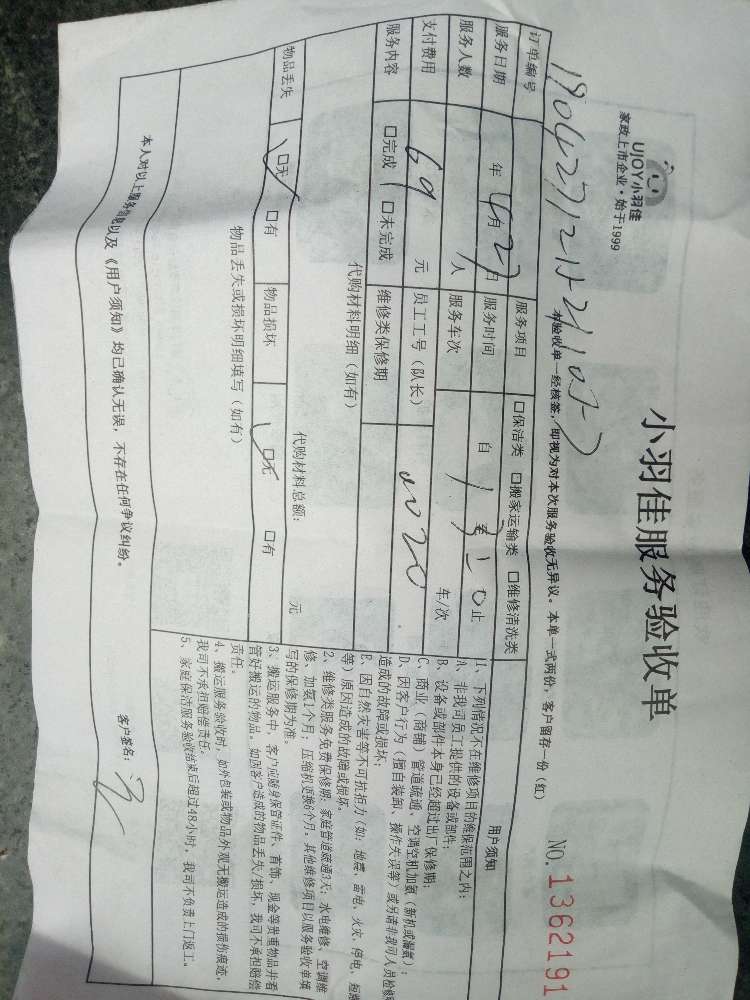 UJOY小羽佳
家政上市企业·始于1999
小羽佳服务验收单
NO.1362191
本验收单一经核签，即视为对本次服务验收无异议。本单一式两份，客户留存一份（红）
订单编号
服务项目 □保洁类 □搬家运输类 □维修清洗类
服务日期 年 4月27日 服务时间 自 至 止
服务人数 人 服务车次 车/次
支付费用 69 元 员工工号（队长）
服务内容 □完成 □未完成 维修类保修期
代购材料明细（如有）
代购材料总额： 元
物品丢失 □无 □有 物品损坏 □无 □有
物品丢失或损坏明细填写（如有）
用户须知
1、下列情况不在维修项目的维保范围之内：
A、非我司员工提供的设备或部件；
B、设备或部件本身已经超过出厂保修期；
C、商业（商铺）管道疏通、空调空机加氨（新机或漏氨）；
D、因客户行为（擅自装卸、操作失误等）或另请非我司人员检修
造成的故障或损坏；
E、因自然灾害等不可抗拒力（如：地震、雷电、火灾、停电、短路
等）原因造成的故障或损坏。
2、维修类服务免费保修期：家庭管道疏通3天；水电维修、空调维
修、加氨1个月；压缩机更换6个月；其他维修项目以服务验收单填
写的保修期为准。
3、搬运服务中，客户应随身保管证件、首饰、现金等贵重物品并看
管好搬运的物品，如因客户造成的物品丢失/损坏，我司不承担赔偿
责任。
4、搬运服务验收时，如外包装或物品外观无搬运造成的损伤痕迹，
我司不承担赔偿责任。
5、家庭保洁服务验收结束后超过48小时，我司不负责上门返工。
本人对以上服务信息以及《用户须知》均已确认无误，不存在任何争议纠纷。
客户签名：